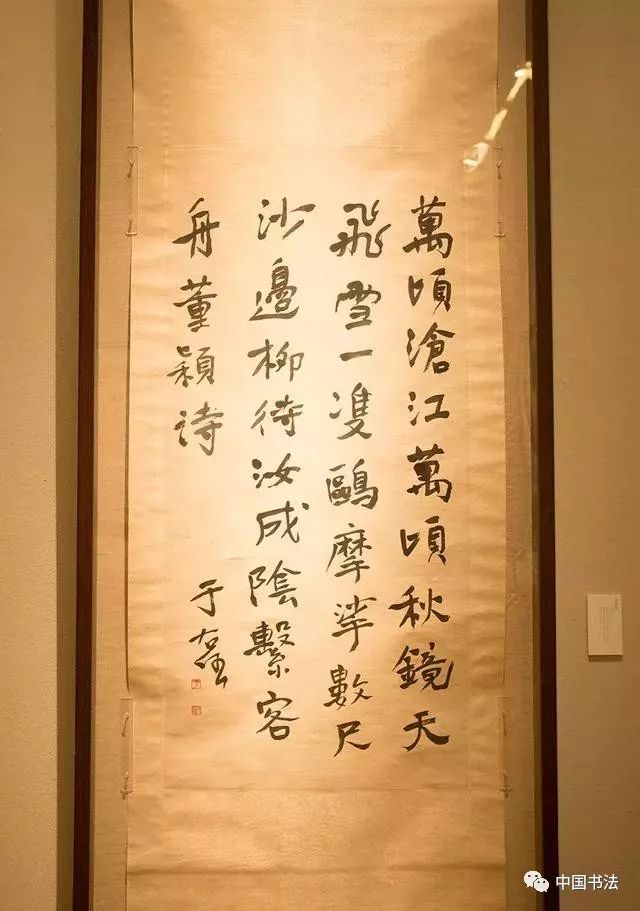 萬頃滄江萬頃秋鏡天
飛雪一雙鷗摩挲數尺
沙邊柳待汝成陰繫客
舟董穎詩
于右任
中国书法